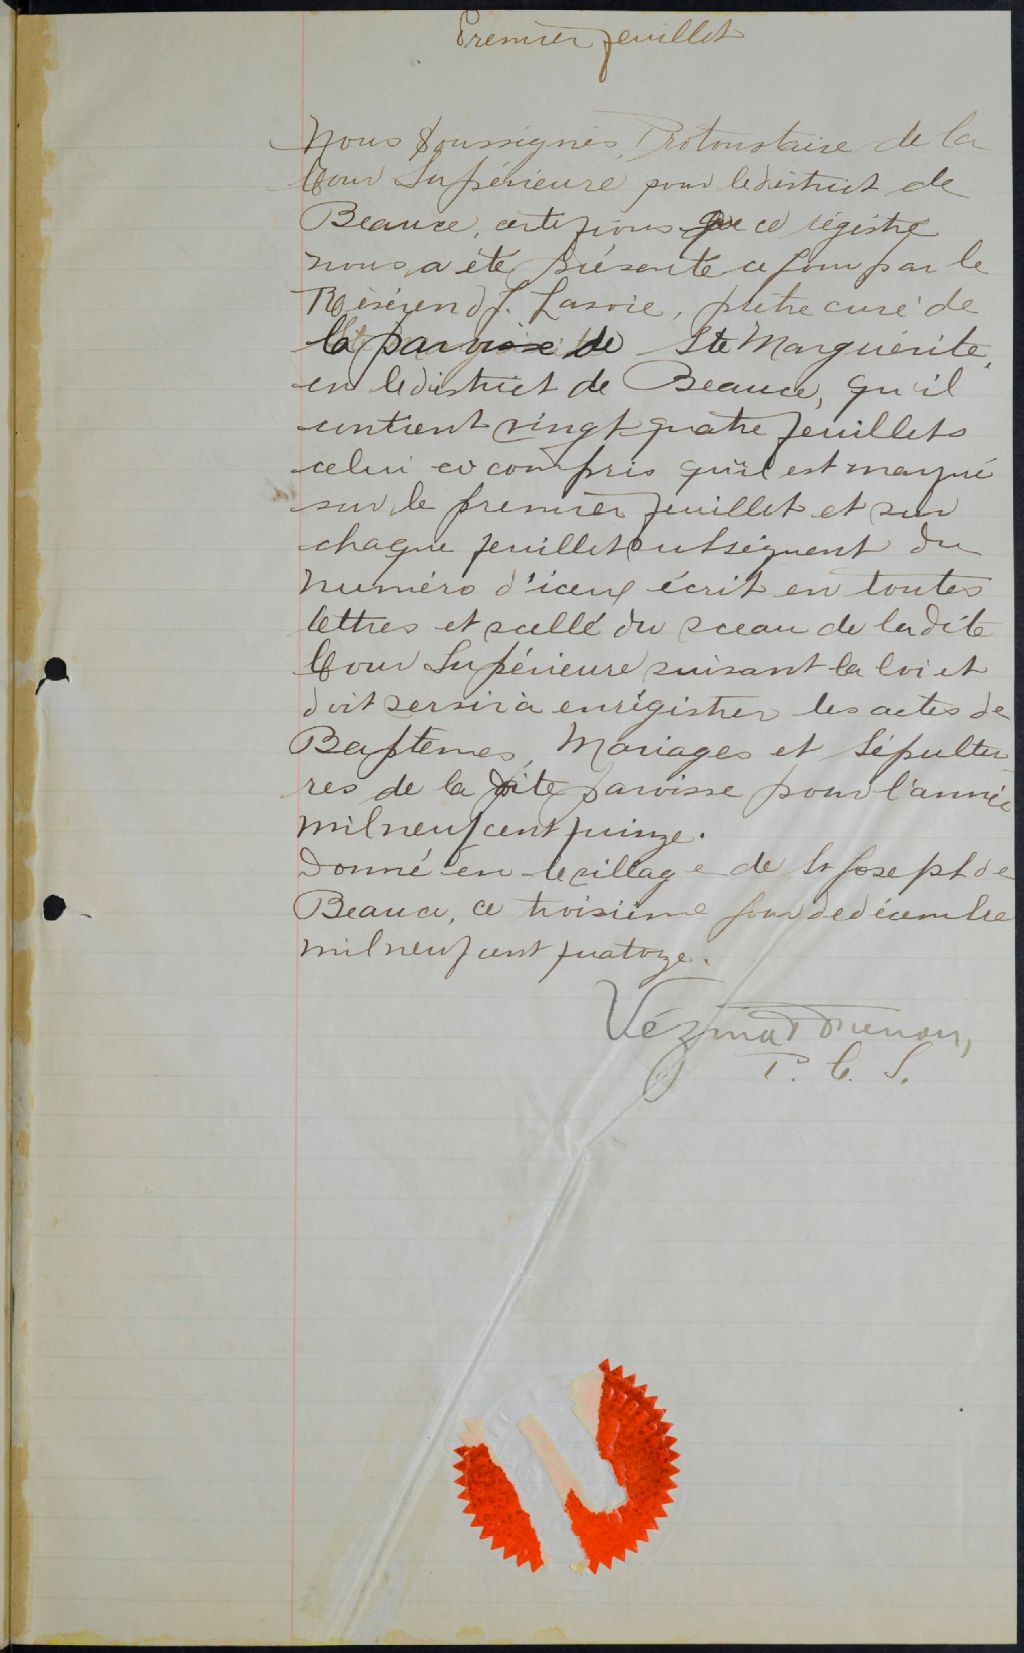 Premier feuillet
Nous Soussignés, Protonotaire de la
Cour Supérieure pour le district de
Beauce, certifions que ce régistre
nous a été présenté ce jour par le
Révérend J. Lavoie, prêtre curé de
la paroisse de Ste Marguerite,
en le district de Beauce, qu'il
contient vingt quatre feuillets
celui ci compris qu'il est marqué
sur le premier feuillet et sur
chaque feuillet subséquent du
numéro d'iceux écrit en toutes
lettres et scellé du sceau de la dite
Cour Supérieure suivant la loi et
doit servir à enrégistrer les actes de
Baptêmes, Mariages et Sépultu
res de la dite paroisse pour l'année
mil neuf cent quinze.
Donné en le village de St Joseph de
Beauce, ce troisième jour de décembre
mil neuf cent quatorze.
Vézina
P. C. S.